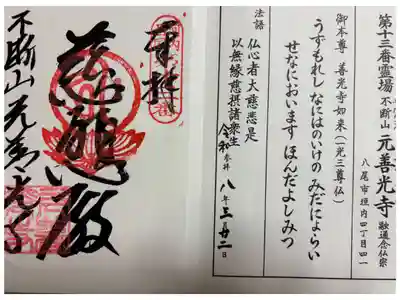 第十三番霊場
不断山 元善光寺 融通念仏宗
八尾市垣内四丁目四一
御本尊 善光寺如来(一光三尊仏)
うずもれし なにはのいけの みだによらい
せなにおいます ほんだよしみつ
法語
仏心者大慈悲是
以無縁慈摂諸衆生
令和 参拝 八年三月廿二日
奉拝
不断山 元善光寺